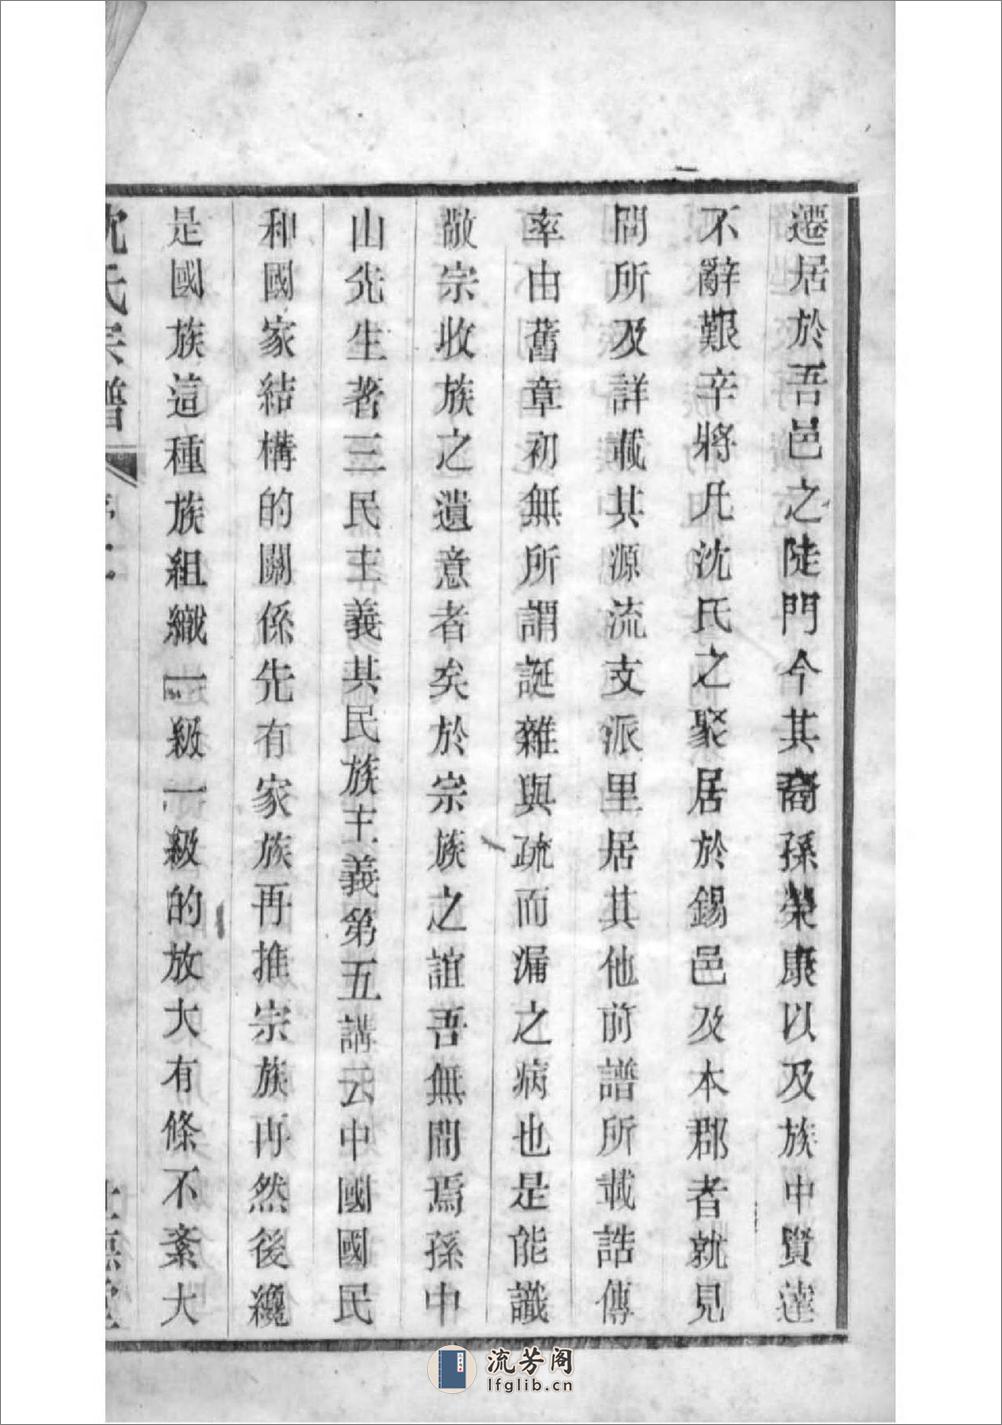 遷居於吾邑之陡門今其裔孫榮康以及族中賢達
不辭艱辛將凡沈氏之聚居於錫邑及本郡者就見
問所及詳載其源流支派里居其他前譜所載誥傳
率由舊章初無所謂誕雜與疏而漏之病也是能識
敬宗收族之遺意者矣於宗族之誼吾無間焉孫中
山先生著三民主義其民族主義第五講云中國國民
和國家結構的關係先有家族再推宗族再然後纔
是國族這種族組織一級一級的放大有條不紊大
沈氏宗譜
流芳阁
lfglib.cn